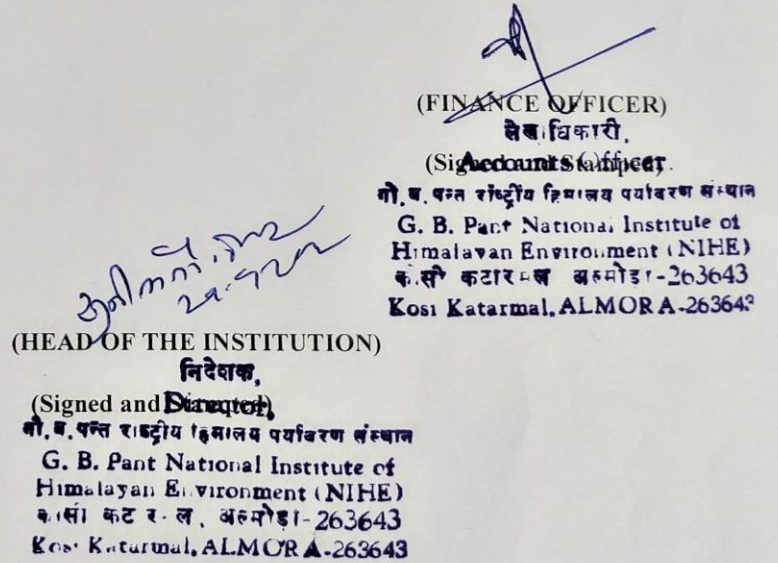 (FINANCE OFFICER)
लेखाधिकारी,
(Signed and Stamped).
Accounts Officer
गो. ब. पन्त राष्ट्रीय हिमालय पर्यावरण संस्थान
G. B. Pant National Institute of
Himalayan Environment (NIHE)
कोसी कटारमल अल्मोड़ा-263643
Kosi Katarmal, ALMORA-263643
(HEAD OF THE INSTITUTION)
निदेशक,
(Signed and Stamped)
Director,
गो. ब. पन्त राष्ट्रीय हिमालय पर्यावरण संस्थान
G. B. Pant National Institute of
Himalayan Environment (NIHE)
कोसी कटारमल, अल्मोड़ा-263643
Kosi Katarmal, ALMORA-263643